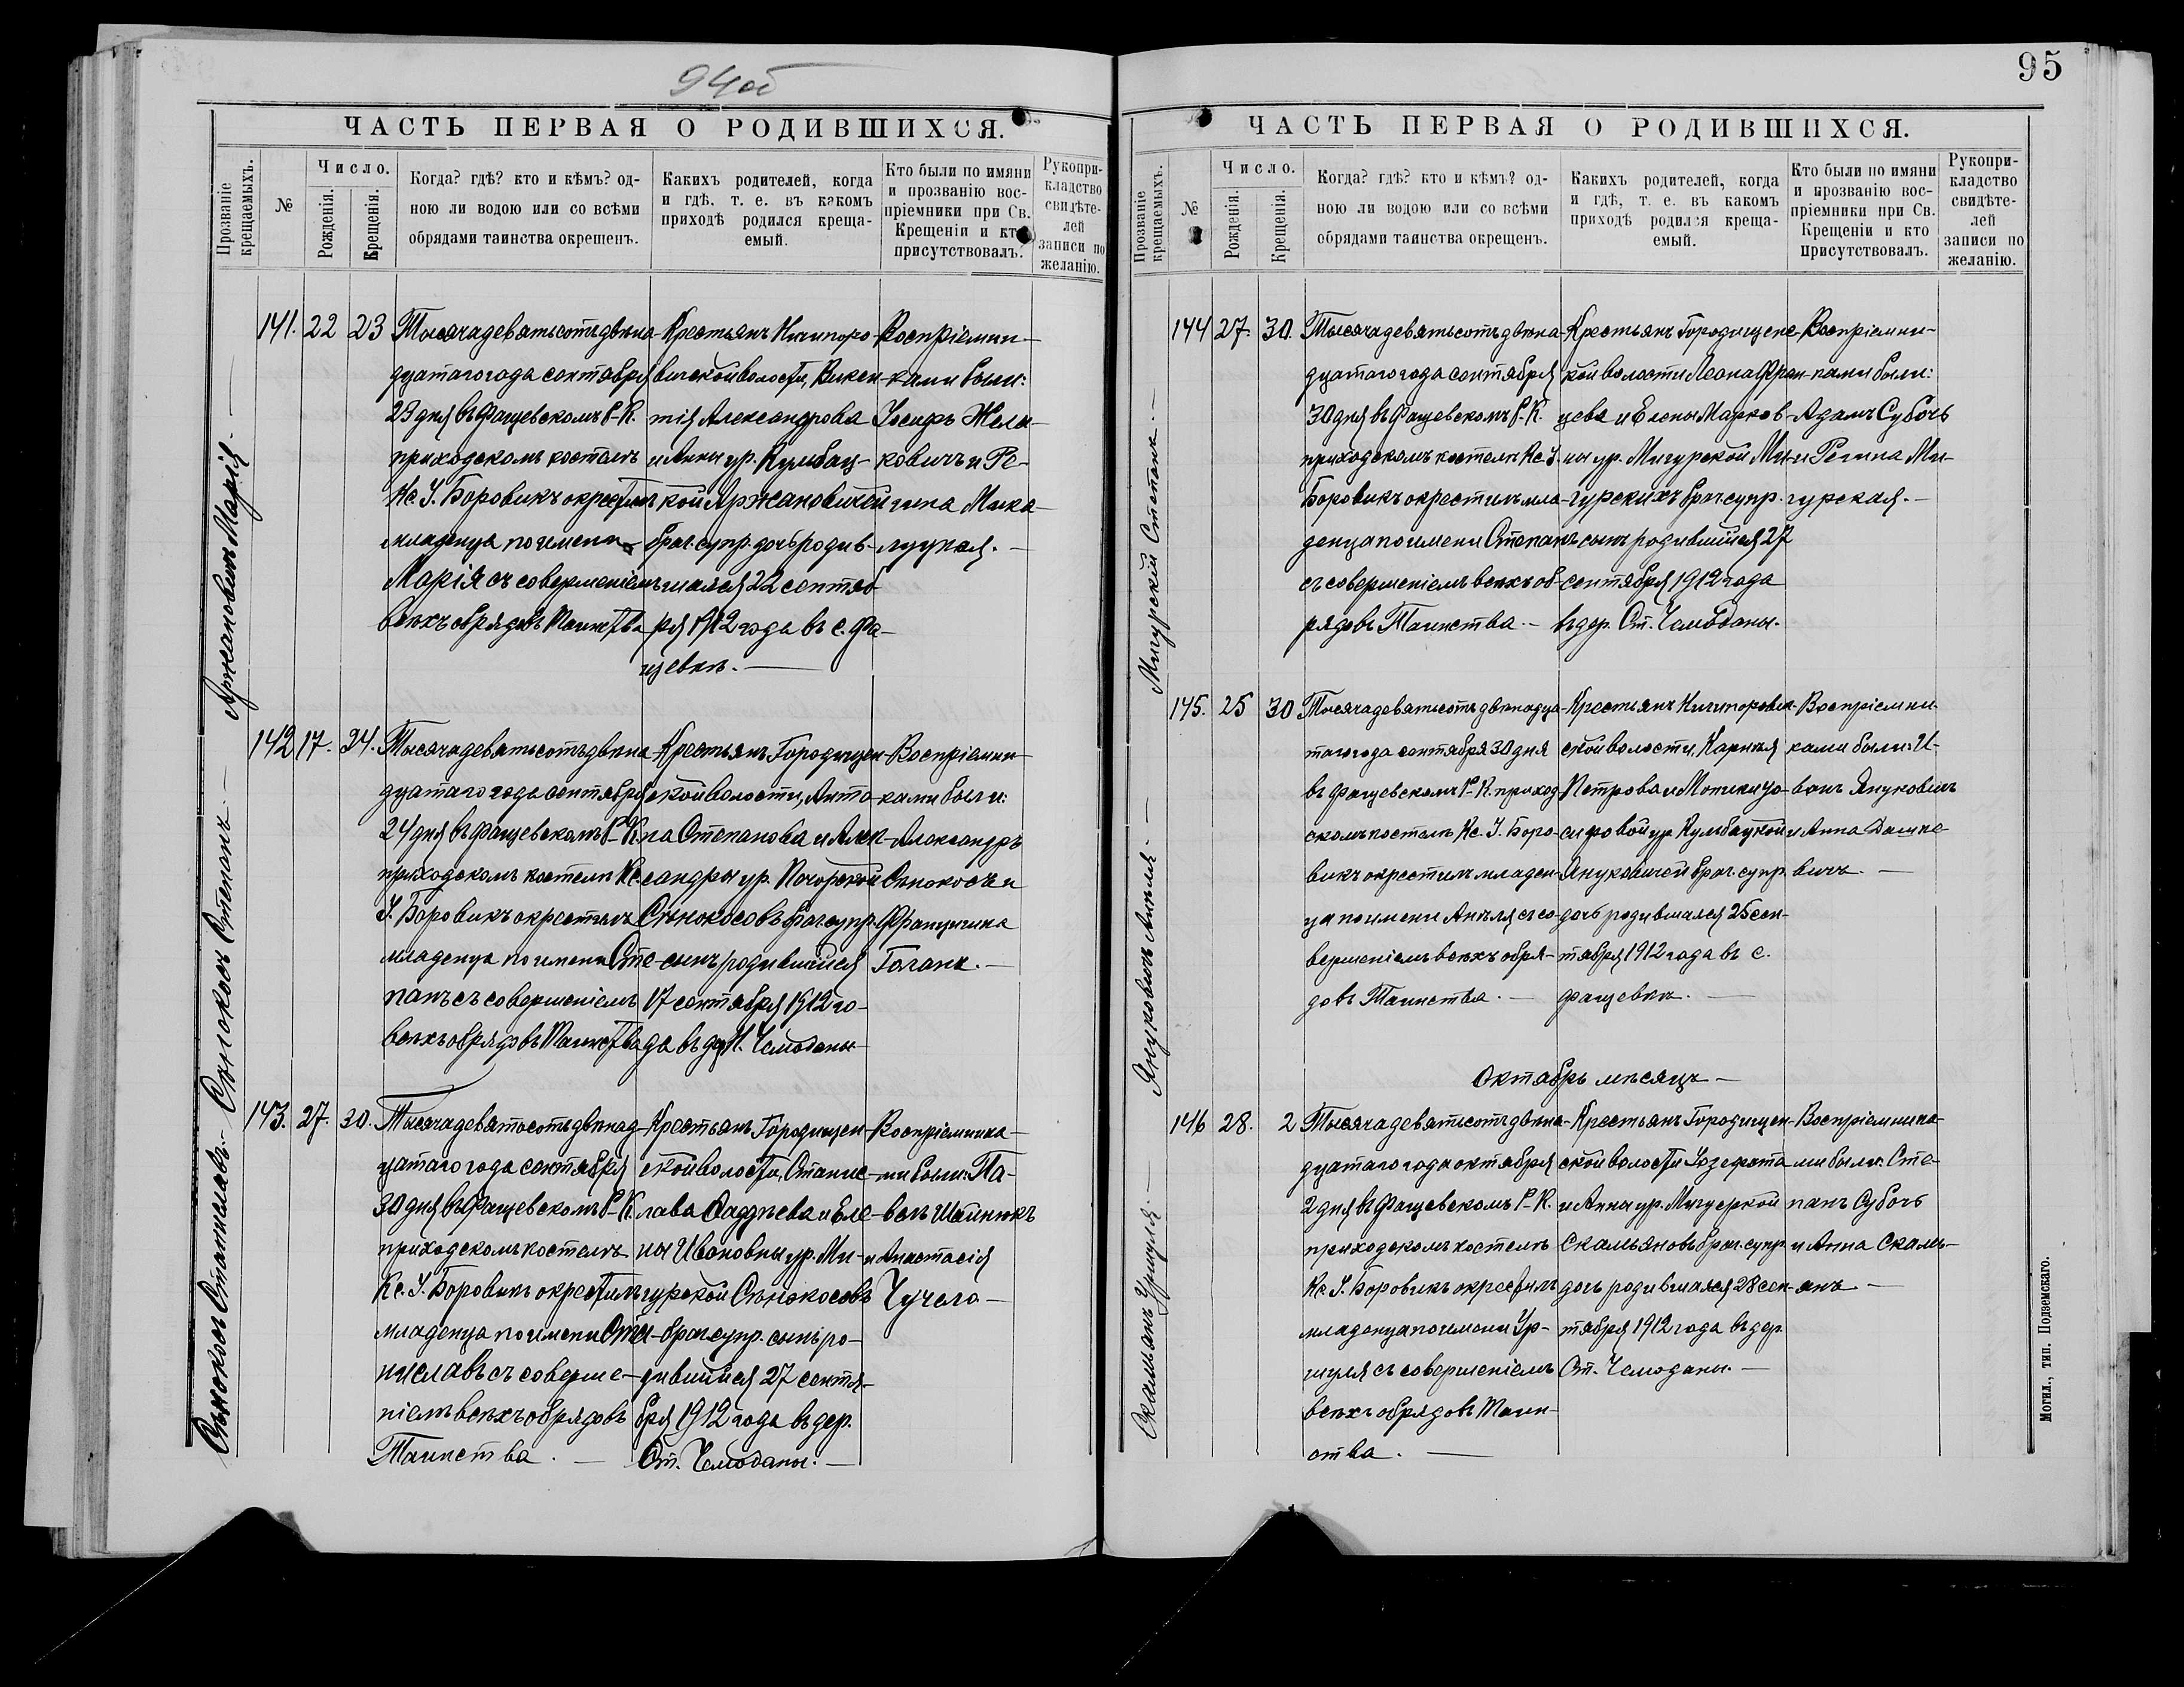 94об
ЧАСТЬ ПЕРВАЯ О РОДИВШИХСЯ.
Прозваніе крещаемыхъ.
№
Число.
Рожденія.
Крещенія.
Когда? гдѣ? кто и кѣмъ? од-
ною ли водою или со всѣми
обрядами таинства окрещенъ.
Какихъ родителей, когда
и гдѣ, т. е. въ какомъ
приходѣ родился креща-
емый.
Кто были по имяни
и прозванію вос-
пріемники при Св.
Крещеніи и кто
присутствовалъ.
Рукопри-
кладство
свидѣте-
лей
записи по
желанію.
Аржановичъ Марія.
141. 22 23
Тысяча девятьсотъ двѣна-
дцатаго года сентября
23 дня въ Фащевскомъ Р-К.
приходскомъ костелѣ
Кс. І. Боровикъ окрестилъ
младенца по имени
Марія съ совершеніемъ
всѣхъ обрядовъ Таинства
Крестьянъ Ничипоро-
вичской волости, Викен-
тія Александрова
и Анны ур. Кульбац-
кой Аржановичей
брач. супр. дочь родив-
шаяся 22 сентяб
ря 1912 года въ с. Фа-
щевкѣ.
Воспріемни-
ками были:
Іосифъ Жела-
ковичъ и Ре-
гина Мика-
луцкая.
Сѣнокосъ Степанъ.
142 17. 24.
Тысяча девятьсотъ двѣна-
дцатаго года сентября
24 дня въ Фащевскомъ Р-К.
приходскомъ костелѣ Кс.
І. Боровикъ окрестилъ
младенца по имени Сте-
панъ съ совершеніемъ
всѣхъ обрядовъ Таинства
Крестьянъ Городищен-
ской волости, Анто-
на Степанова и Алек-
сандры ур. Почорской
Сѣнокосовъ брач. супр.
сынъ родившійся
17 сентября 1912 го-
да въ дер. Н. Чемоданы
Воспріемни-
ками были:
Александръ
Сѣнокосъ и
Францишка
Голака.
Сѣнокосъ Станиславъ.
143. 27. 30.
Тысяча девятьсотъ двѣнад-
цатаго года сентября
30 дня въ Фащевскомъ Р-К.
приходскомъ костелѣ
Кс. І. Боровикъ окрестилъ
младенца по имени Ста-
ниславъ съ соверше-
ніемъ всѣхъ обрядовъ
Таинства.
Крестьянъ Городищен-
ской волости, Станис-
лава Фаддѣева и Еле-
ны Ивановны ур. Ми-
гурской Сѣнокосовъ
брач. супр. сынъ ро-
дившійся 27 сентя-
бря 1912 года въ дер.
Ст. Чемоданы.
Воспріемника-
ми были: Па-
велъ Шаїнюкъ
и Анастасія
Чучело
95
ЧАСТЬ ПЕРВАЯ О РОДИВШИХСЯ.
Прозваніе крещаемыхъ.
№
Число.
Рожденія.
Крещенія.
Когда? гдѣ? кто и кѣмъ? од-
ною ли водою или со всѣми
обрядами таинства окрещенъ.
Какихъ родителей, когда
и гдѣ, т. е. въ какомъ
приходѣ родился креща-
емый.
Кто были по имяни
и прозванію вос-
пріемники при Св.
Крещеніи и кто
присутствовалъ.
Рукопри-
кладство
свидѣте-
лей
записи по
желанію.
Мигурскій Степанъ.
144 27. 30.
Тысяча девятьсотъ двѣна-
дцатаго года сентября
30 дня въ Фащевскомъ Р-К.
приходскомъ костелѣ Кс. І.
Боровикъ окрестилъ мла-
денца по имени Степанъ
съ совершеніемъ всѣхъ об-
рядовъ Таинства.
Крестьянъ Городищенс-
кой волости Леона Фран-
цева и Елены Марков-
ны ур. Мигурской Ми-
гурскихъ брач. супр.
сынъ родившійся 27
сентября 1912 года
въ дер. Ст. Чемоданы.
Воспріемни-
ками были:
Адамъ Субочъ
и Регина Ми-
гурская.
Януковичъ Анѣля.
145. 25 30
Тысяча девятьсотъ двѣнадца-
таго года сентября 30 дня
въ Фащевскомъ Р-К. приход
скомъ костелѣ Кс. І. Боро-
викъ окрестилъ младен-
ца по имени Анѣля съ со-
вершеніемъ всѣхъ обря-
довъ Таинства.
Крестьянъ Ничипорович-
ской волости, Карнѣя
Петрова и Моники Іо-
сифовой ур. Кульбацкой
Януковичей брач. супр.
дочь родившаяся 25 сен-
тября 1912 года въ с.
Фащевкѣ.
Воспріемни-
ками были: И-
ванъ Януковичъ
и Анна Дашке-
вичъ.
Октябрь мѣсяцъ
Скамьянъ Уршуля.
146 28. 2
Тысяча девятьсотъ двѣна-
дцатаго года октября
2 дня въ Фащевскомъ Р-К.
приходскомъ костелѣ
Кс. І. Боровикъ окрестилъ
младенца по имени Ур-
шуля съ совершеніемъ
всѣхъ обрядовъ Таин-
ства.
Крестьянъ Городищен-
ской волости Іозефата
и Анны ур. Мигурской
Скамьяновъ брач. супр.
дочь родившаяся 28 сен-
тября 1912 года въ дер.
Ст. Чемоданы.
Воспріемника-
ми были: Сте-
панъ Субочъ
и Анна Скамь-
янъ
Могил., тип. Подземскаго.